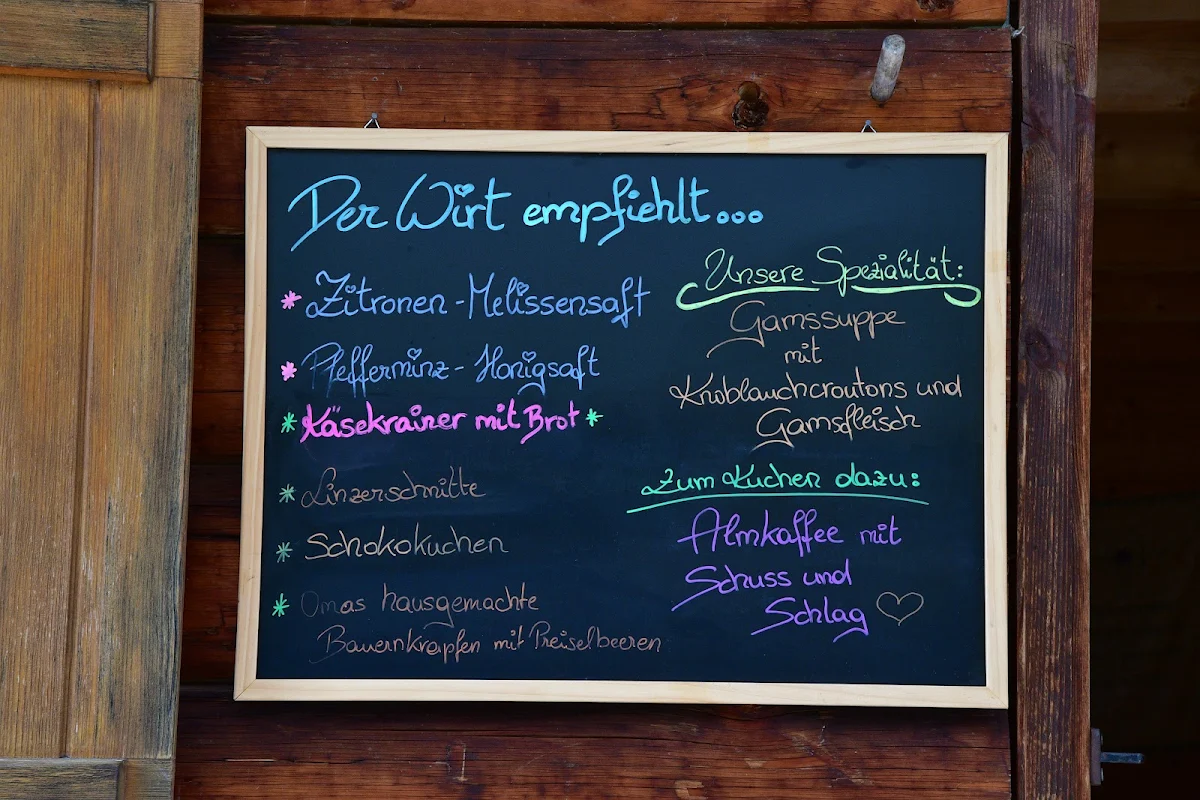 Der Wirt empfiehlt...
* Zitronen-Melissensaft
* Pfefferminz-Honigsaft
* Käsekrainer mit Brot *
* Linzerschnitte
* Schokokuchen
* Omas hausgemachte
Bauernkrapfen mit Preiselbeeren
Unsere Spezialität:
Gamssuppe
mit
Knoblauchcroutons und
Gamsfleisch
Zum Kuchen dazu:
Almkaffee mit
Schuss und
Schlag ♡